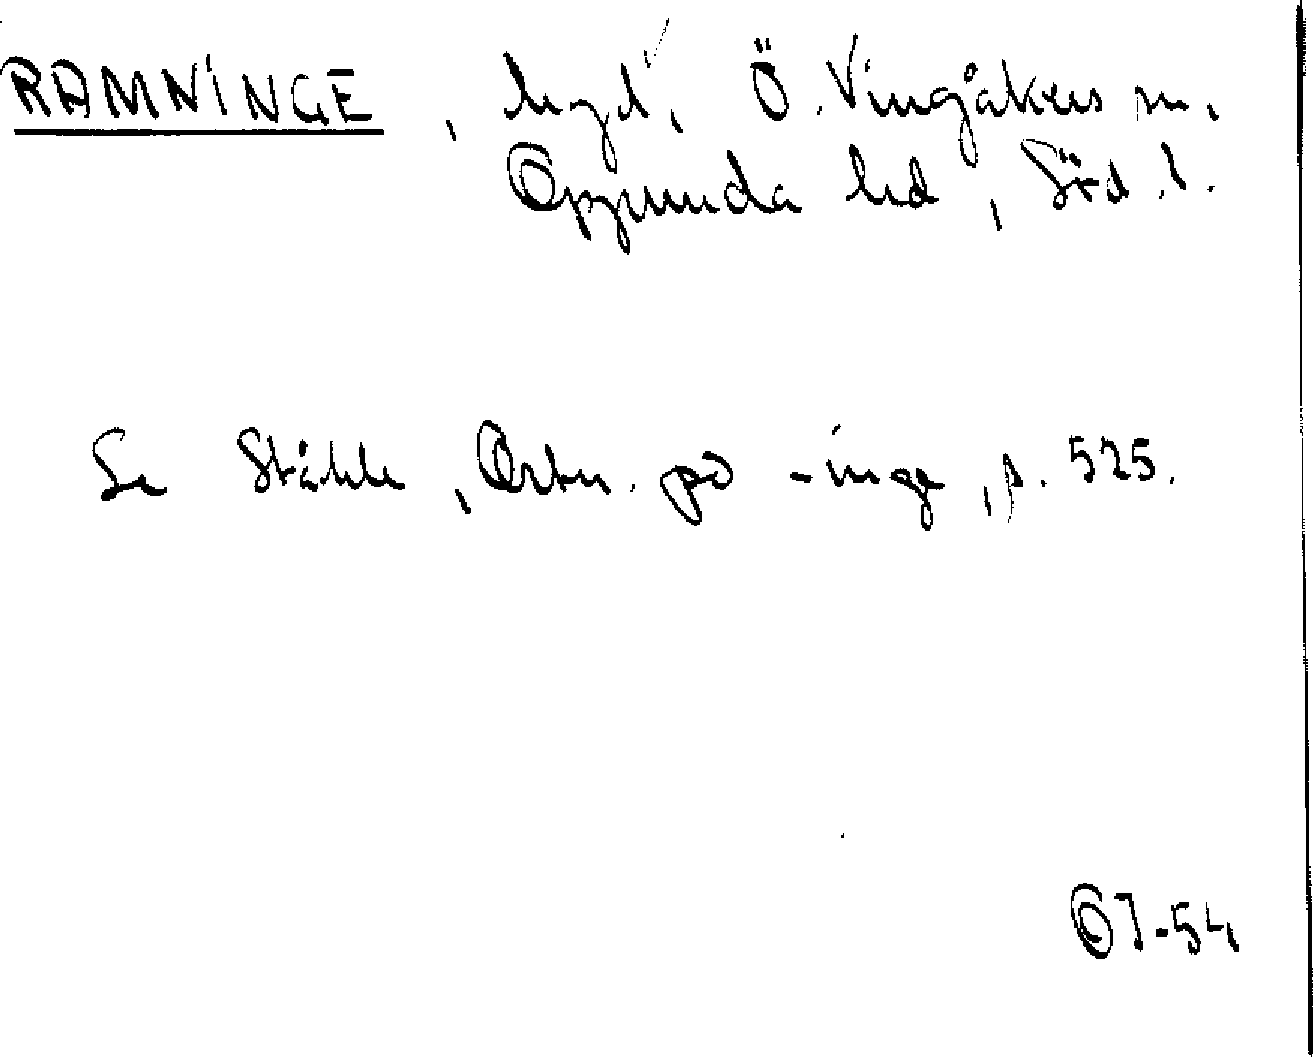 RAMNINGE, bygd, Ö. Vingåkers sn,
Oppunda hd, Söd. l.
Se Ståhle, Ortn. på -inge, p. 525.
OJ-54